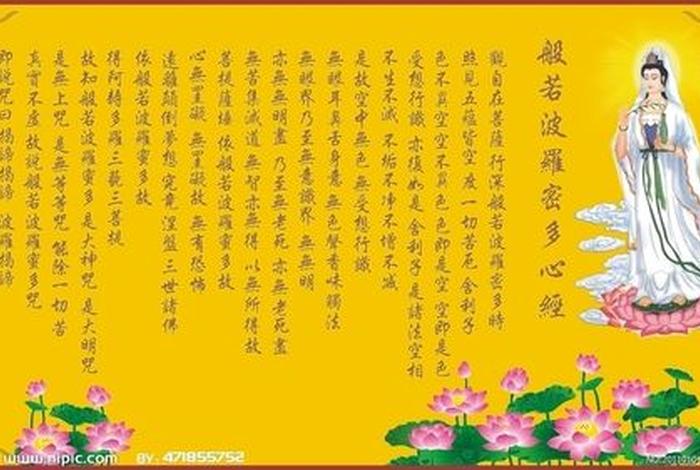 般若波羅密多心經
觀自在菩薩 行深般若波羅密多時
照見五蘊皆空 度一切苦厄 舍利子
色不異空 空不異色 色即是空 空即是色
受想行識 亦復如是 舍利子 是諸法空相
不生不滅 不垢不凈 不增不減
是故空中無色 無受想行識
無眼耳鼻舌身意 無色聲香味觸法
無眼界 乃至無意識界 無無明
亦無無明盡 乃至無老死 亦無老死盡
無苦集滅道 無智亦無得 以無所得故
菩提薩埵 依般若波羅蜜多故
心無罣礙 無罣礙故 無有恐怖
遠離顛倒夢想 究竟涅盤 三世諸佛
依般若波羅蜜多故
得阿耨多羅三藐三菩提
故知般若波羅蜜多 是大神咒 是大明咒
是無上咒 是無等等咒 能除一切苦
真實不虛 故說般若波羅蜜多咒
即說咒曰 揭諦揭諦 波羅揭諦
www.nipic.com BY: 471855752